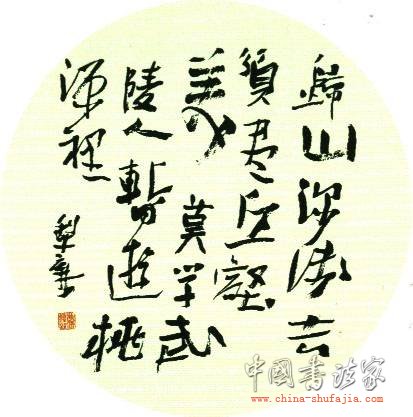 歸山深淺去
須盡丘壑
美莫學武
陵人暫遊桃
源裡
中國書法家
www.china-shufajia.com